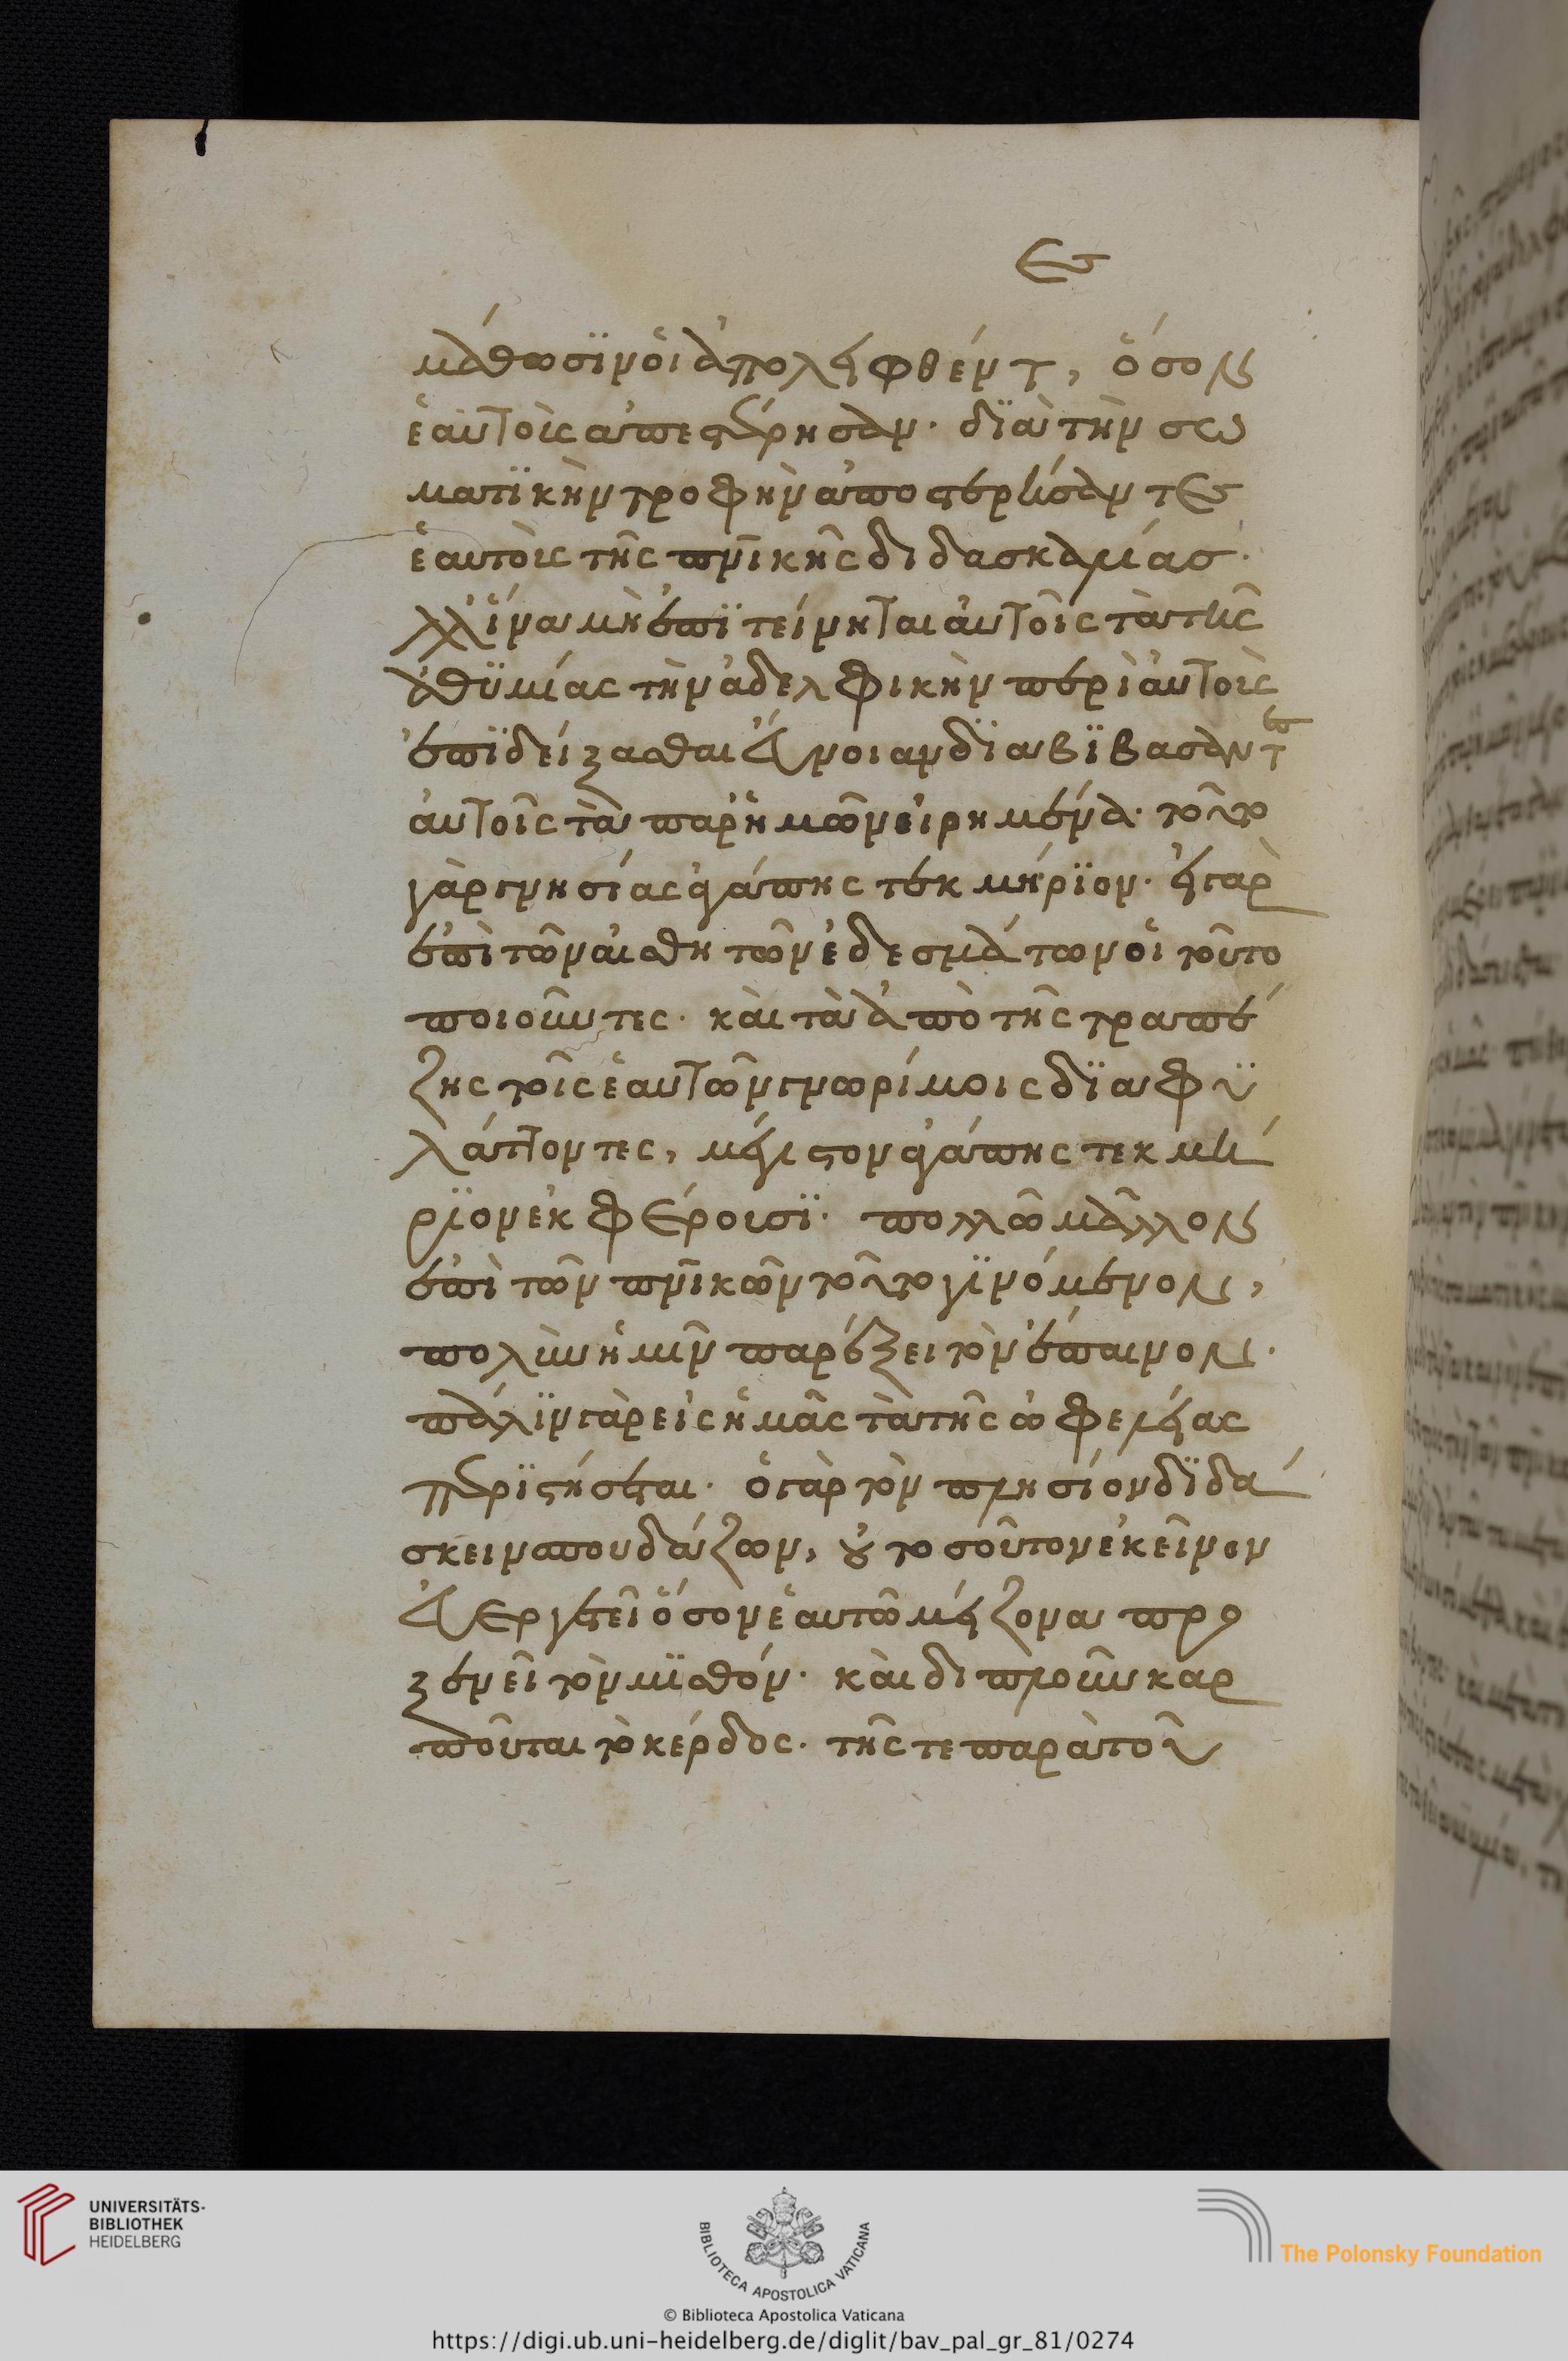 ες
μάθωσϊν ὁι ἀπολειφθέντ, ὅσον
ἑαυτοὺς ἀπεστέρησαν. δϊὰ τὴν σω
ματϊκὴν τροφὴν ἀποστερήσαντες
ἑαυτοὺς τῆς πνϊκῆς διδασκαλίασ.
ἀλλ ἵνα μὴ ἐπϊτείνηται ἀυτοῖς τὰ τῆς
ἀθϋμίας τὴν ἀδελφικὴν περὶ ἀυτοὺς
ἐπϊδείξασθαι εὔνοιαν δϊαβϊβασαντες
ἀυτοῖς τὰ παρ ἡμῶν εἰρημένα. τοῦτο
γὰρ γνησίας ἀγάπης τεκμήρϊον. εἰ γὰρ
ἐπὶ τῶν αἰσθητῶν ἐδεσμάτων ὁι τοῦτο
ποιοῦντες. κὰι τὰ ἀπὸ τῆς τραπέ
ζης τοῖς ἑαυτῶν γνωρίμοις δϊαφϋ
λάττοντες, μέγιστον ἀγάπης τεκμή
ρϊον ἐκφέρουσϊ. πολλῶ μᾶλλον
ἐπὶ τῶν πνϊκῶν τοῦτο γϊνόμενον,
πολὺν ἡμῖν παρέξει τὸν ἔπαινον.
πάλϊν γὰρ εἰς ἡμᾶς τὰ τῆς ὠφελείας
περϊστήσεται. ὁ γὰρ τὸν πλησίον δϊδά
σκειν σπουδάζων, οὐ τοσοῦτον ἐκεῖνον
εὐεργετεῖ ὅσον ἑαυτῶ μείζονα προ
ξενεῖ τὸν μϊσθόν. κὰι διπλοῦν καρ
ποῦται τὸ κέρδος. τῆς τε παρὰ τοῦ
UNIVERSITÄTS-
BIBLIOTHEK
HEIDELBERG
BIBLIOTECA APOSTOLICA VATICANA
The Polonsky Foundation
© Biblioteca Apostolica Vaticana
https://digi.ub.uni-heidelberg.de/diglit/bav_pal_gr_81/0274